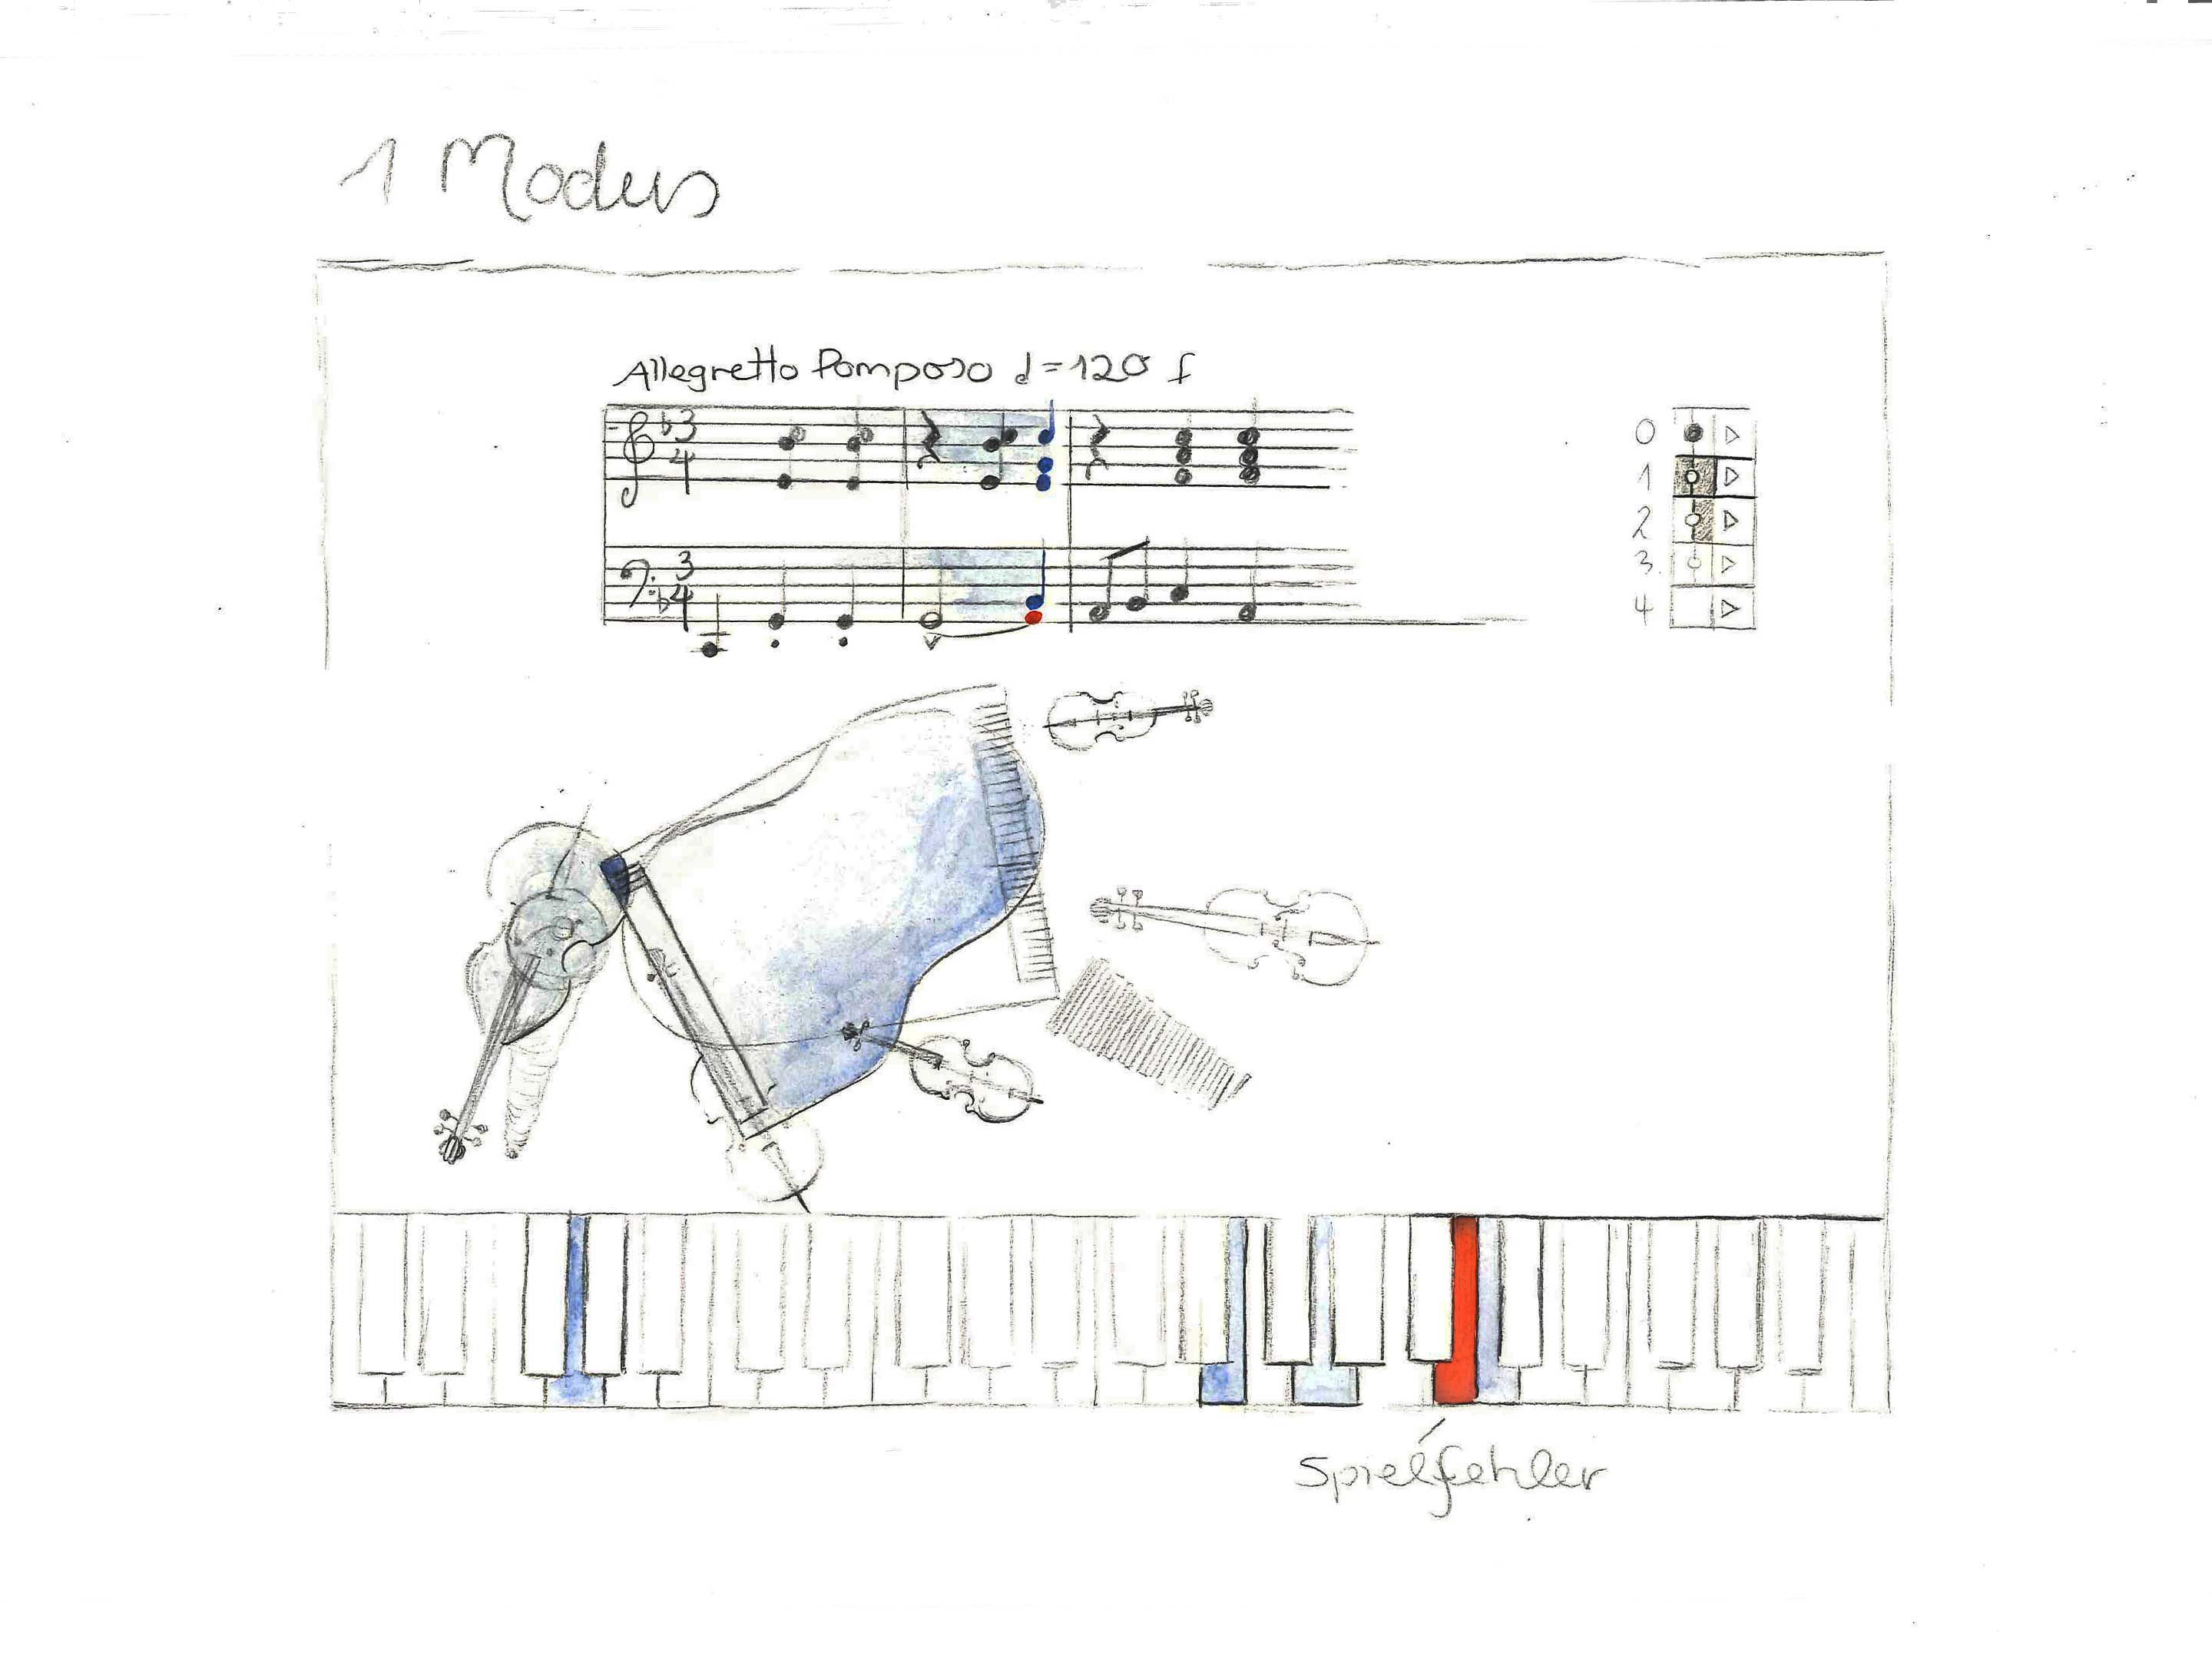 1 Modus
Allegretto Pomposo d=120 f
3
4
3
4
0
1
2
3.
4
Spielfehler